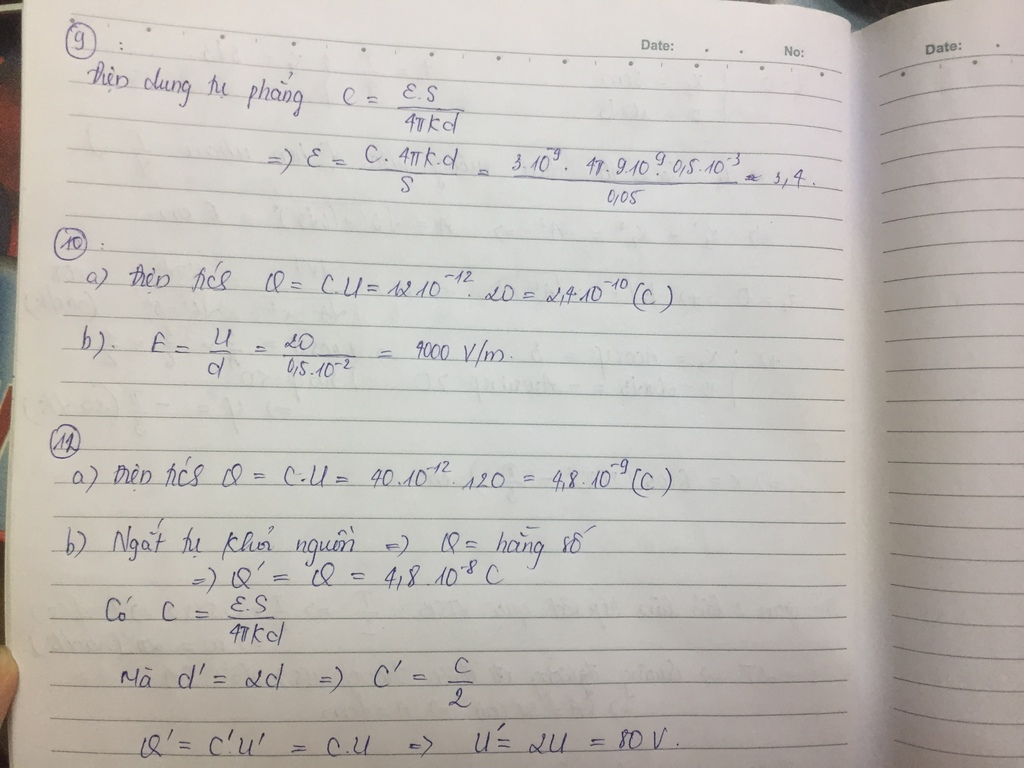 Date: No:
⑨ :
Điện dung tụ phẳng C = ε.S / 4πkd
=) ε = C.4πk.d / S = 3.10⁻⁹. 4π.9.10⁹.0,5.10⁻³ / 0,05 ≈ 3,4.
⑩ :
a) Điện tích Q = C.U = 12.10⁻¹² . 20 = 2,4.10⁻¹⁰ (C)
b). E = U / d = 20 / 0,5.10⁻² = 4000 V/m.
⑫
a) Điện tích Q = C.U = 40.10⁻¹² . 120 = 4,8.10⁻⁹ (C)
b) Ngắt tụ khỏi nguồn =) Q = hằng số
=) Q' = Q = 4,8 10⁻⁸ C
Có C = ε.S / 4πkd
Mà d' = 2d =) C' = C / 2
Q' = C'U' = C.U =) U' = 2U = 80 V.
Date: